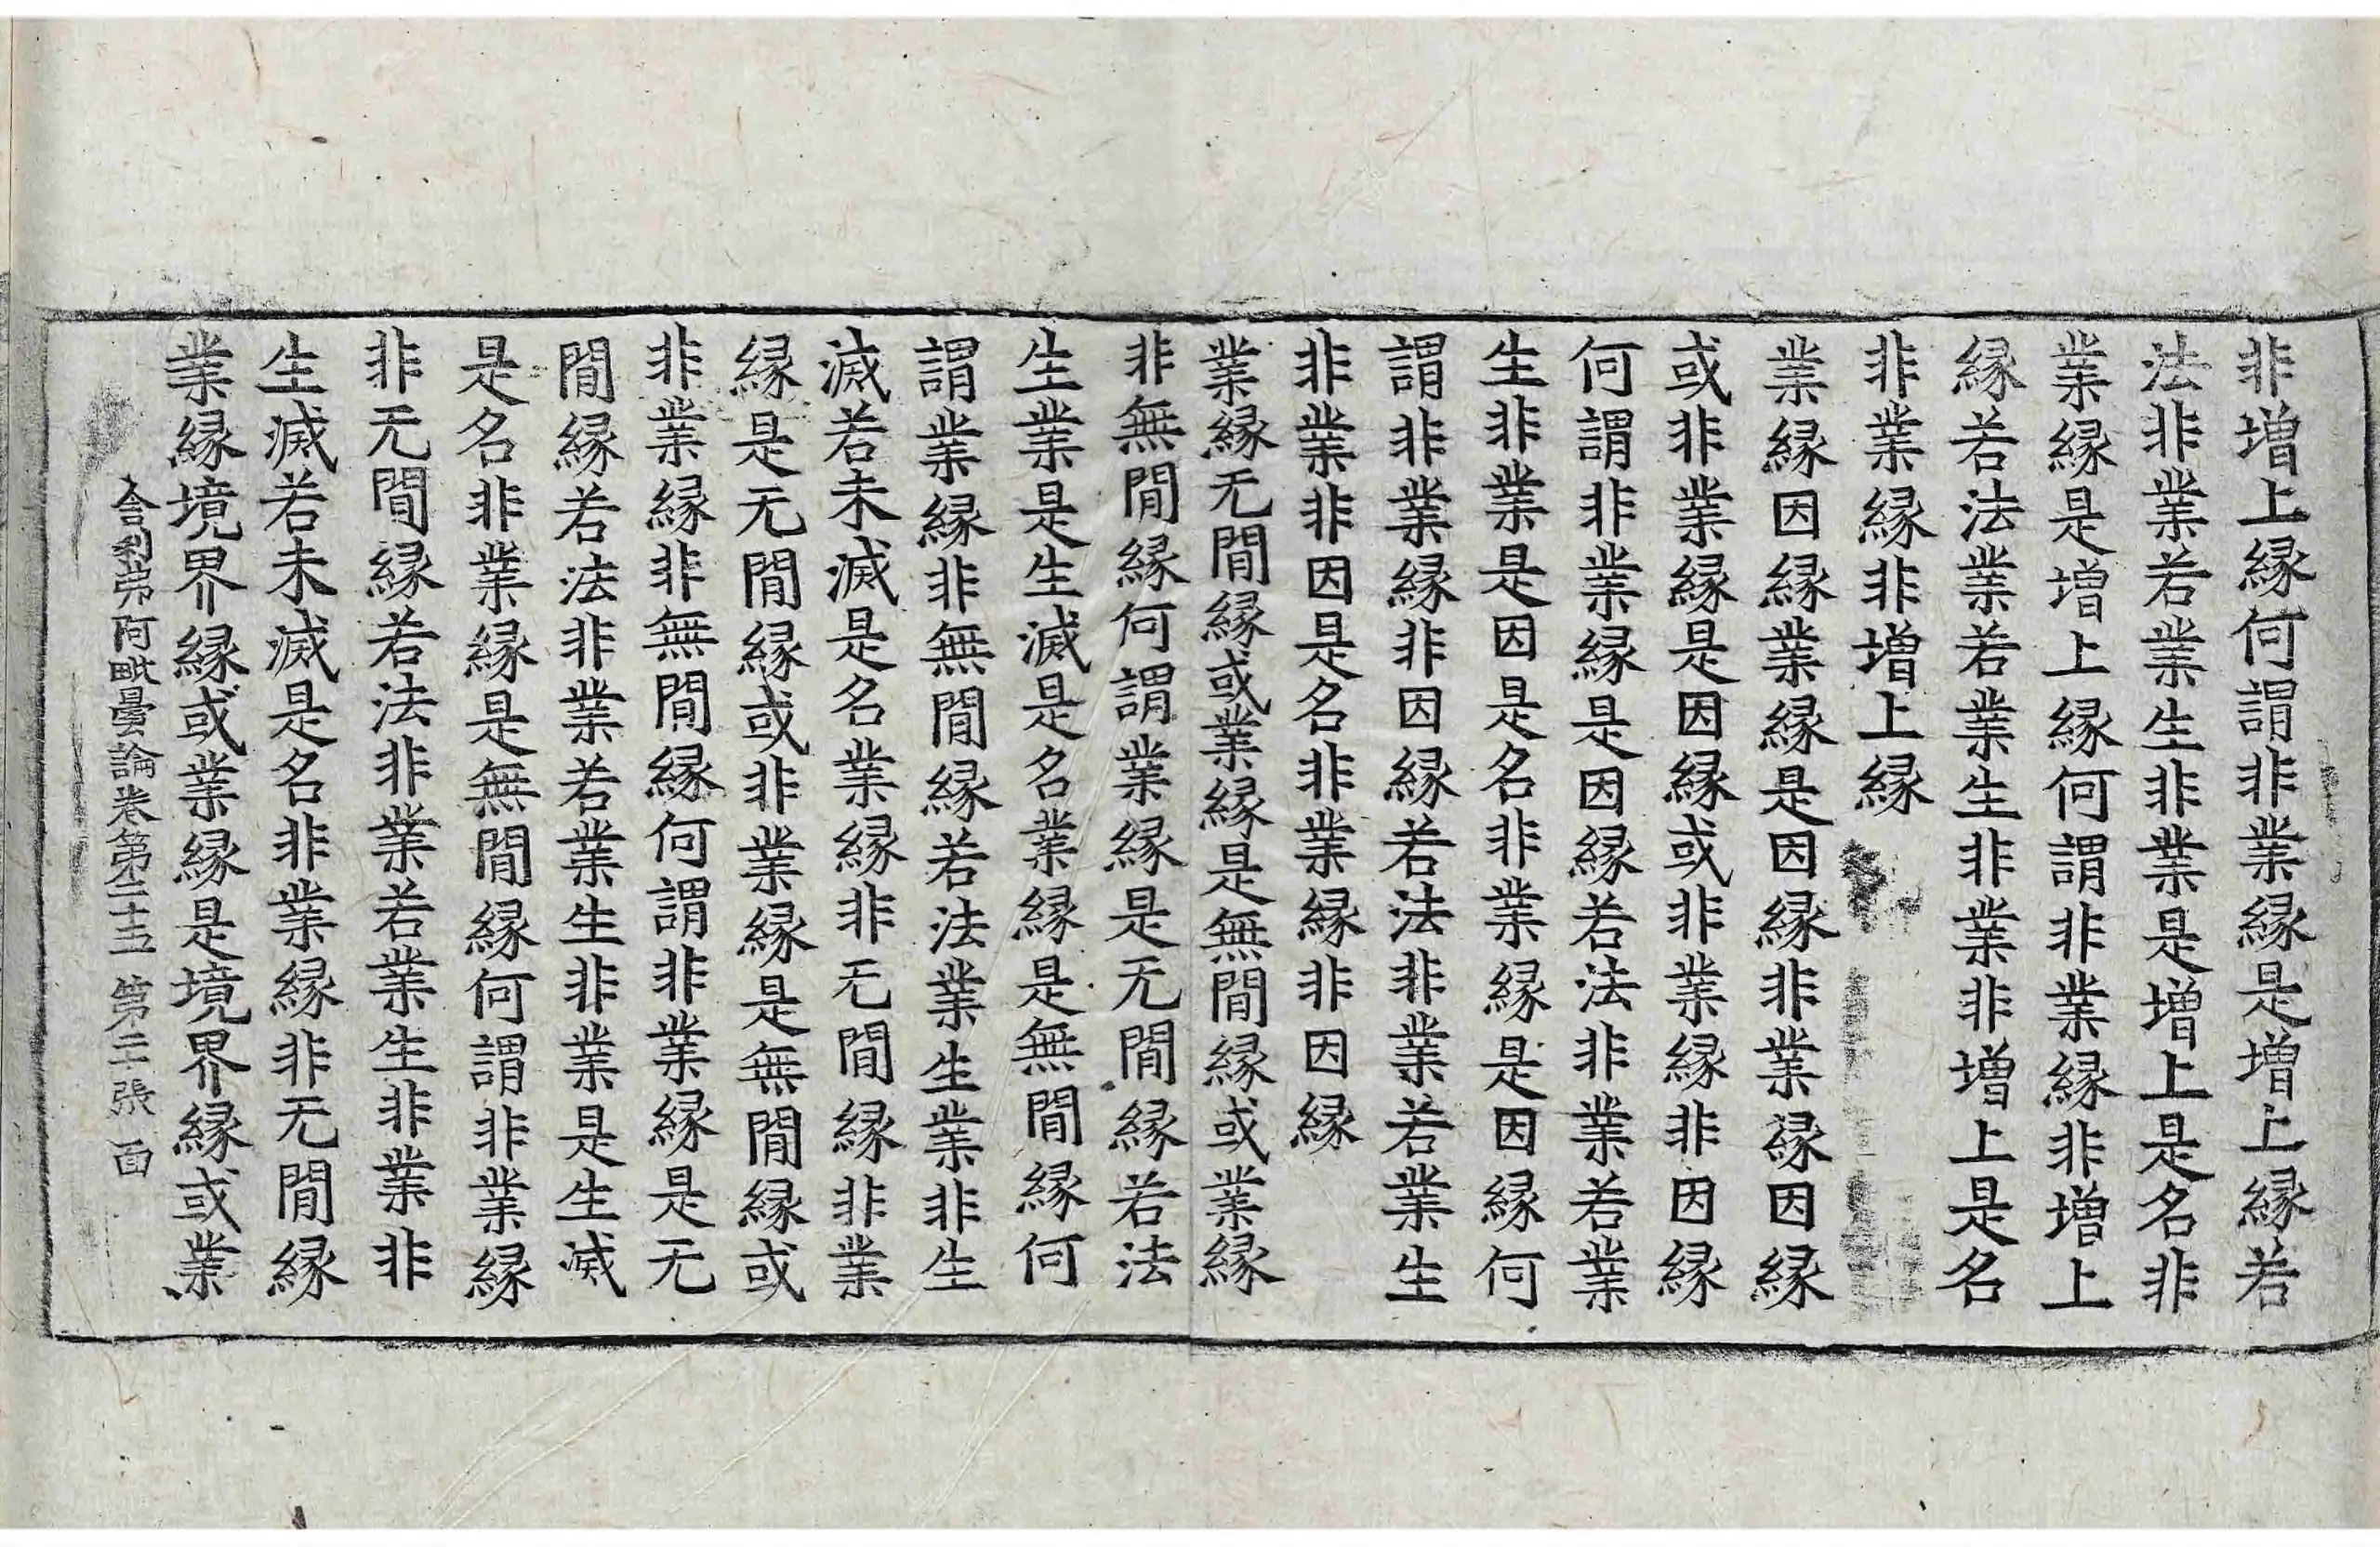 非增上緣何謂非業緣是增上緣若
法非業若業生非業是增上是名非
業緣是增上緣何謂非業緣非增上
緣若法業若業生非業非增上是名
非業緣非增上緣
業緣因緣業緣是因緣非業緣因緣
或非業緣是因緣或非業緣非因緣
何謂非業緣是因緣若法非業若業
生非業是因是名非業緣是因緣何
謂非業緣非因緣若法非業若業生
非業非因是名非業緣非因緣
業緣无間緣或業緣是無間緣或業緣
非無間緣何謂業緣是无間緣若法
生業是生滅是名業緣是無間緣何
謂業緣非無間緣若法業生業非生
滅若未滅是名業緣非无間緣非業
緣是无間緣或非業緣是無間緣或
非業緣非無間緣何謂非業緣是无
間緣若法非業若業生非業是生滅
是名非業緣是無間緣何謂非業緣
非无間緣若法非業若業生非業非
生滅若未滅是名非業緣非无間緣
業緣境界緣或業緣是境界緣或業
舍利弗阿毗曇論卷第二十五 第二張 面